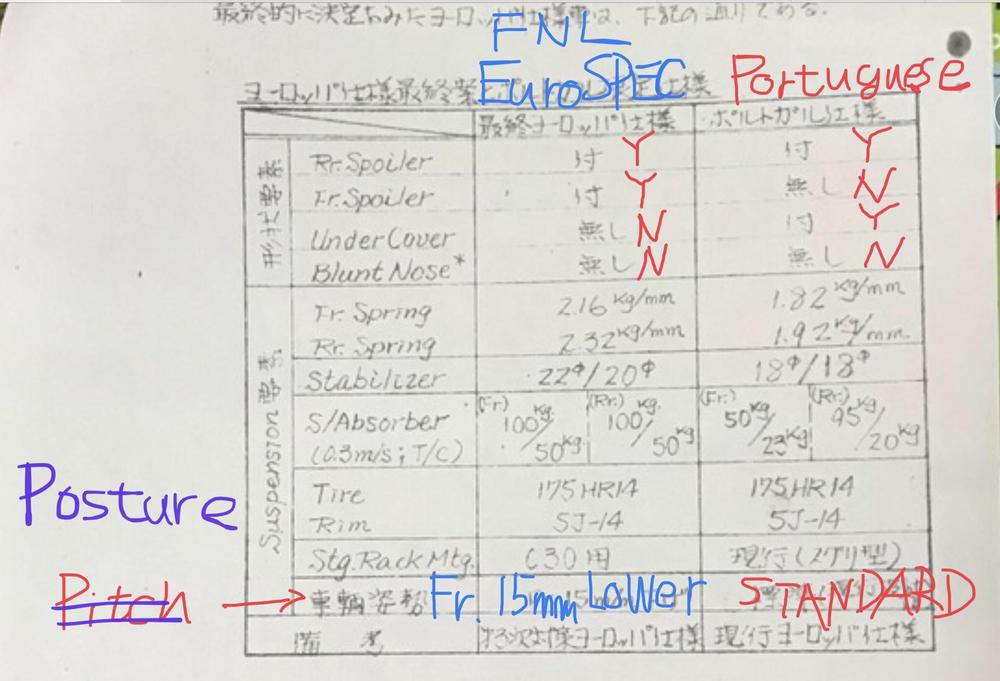 最終的に決定をみたヨーロッパ仕様車は、下記の通りである。
FNL
EuroSPEC Portuguese
ヨーロッパ仕様最終案
最終ヨーロッパ仕様 ポルトガル仕様
形状要素 Rr.Spoiler 付 Y 付 Y
Fr.Spoiler 付 Y 無し N
UnderCover 無し N 付 Y
Blunt Nose* 無し N 無し N
Suspension 要素 Fr. Spring 2.16 kg/mm 1.82 kg/mm
Rr. Spring 2.32 kg/mm 1.92 kg/mm
Stabilizer 22φ/20φ 18φ/18φ
S/Absorber (Fr.) 100kg/50kg (Rr.) 100kg/50kg (Fr.) 50kg/23kg (Rr.) 95kg/20kg
(0.3m/s; T/C)
Posture
Tire 175HR14 175HR14
Rim 5J-14 5J-14
Stg. Rack Mtg. C30用 現行(
Pitch → 車輌姿勢 Fr. 15mm Lower STANDARD
備考 対策ヨーロッパ仕様 現行ヨーロッパ仕様